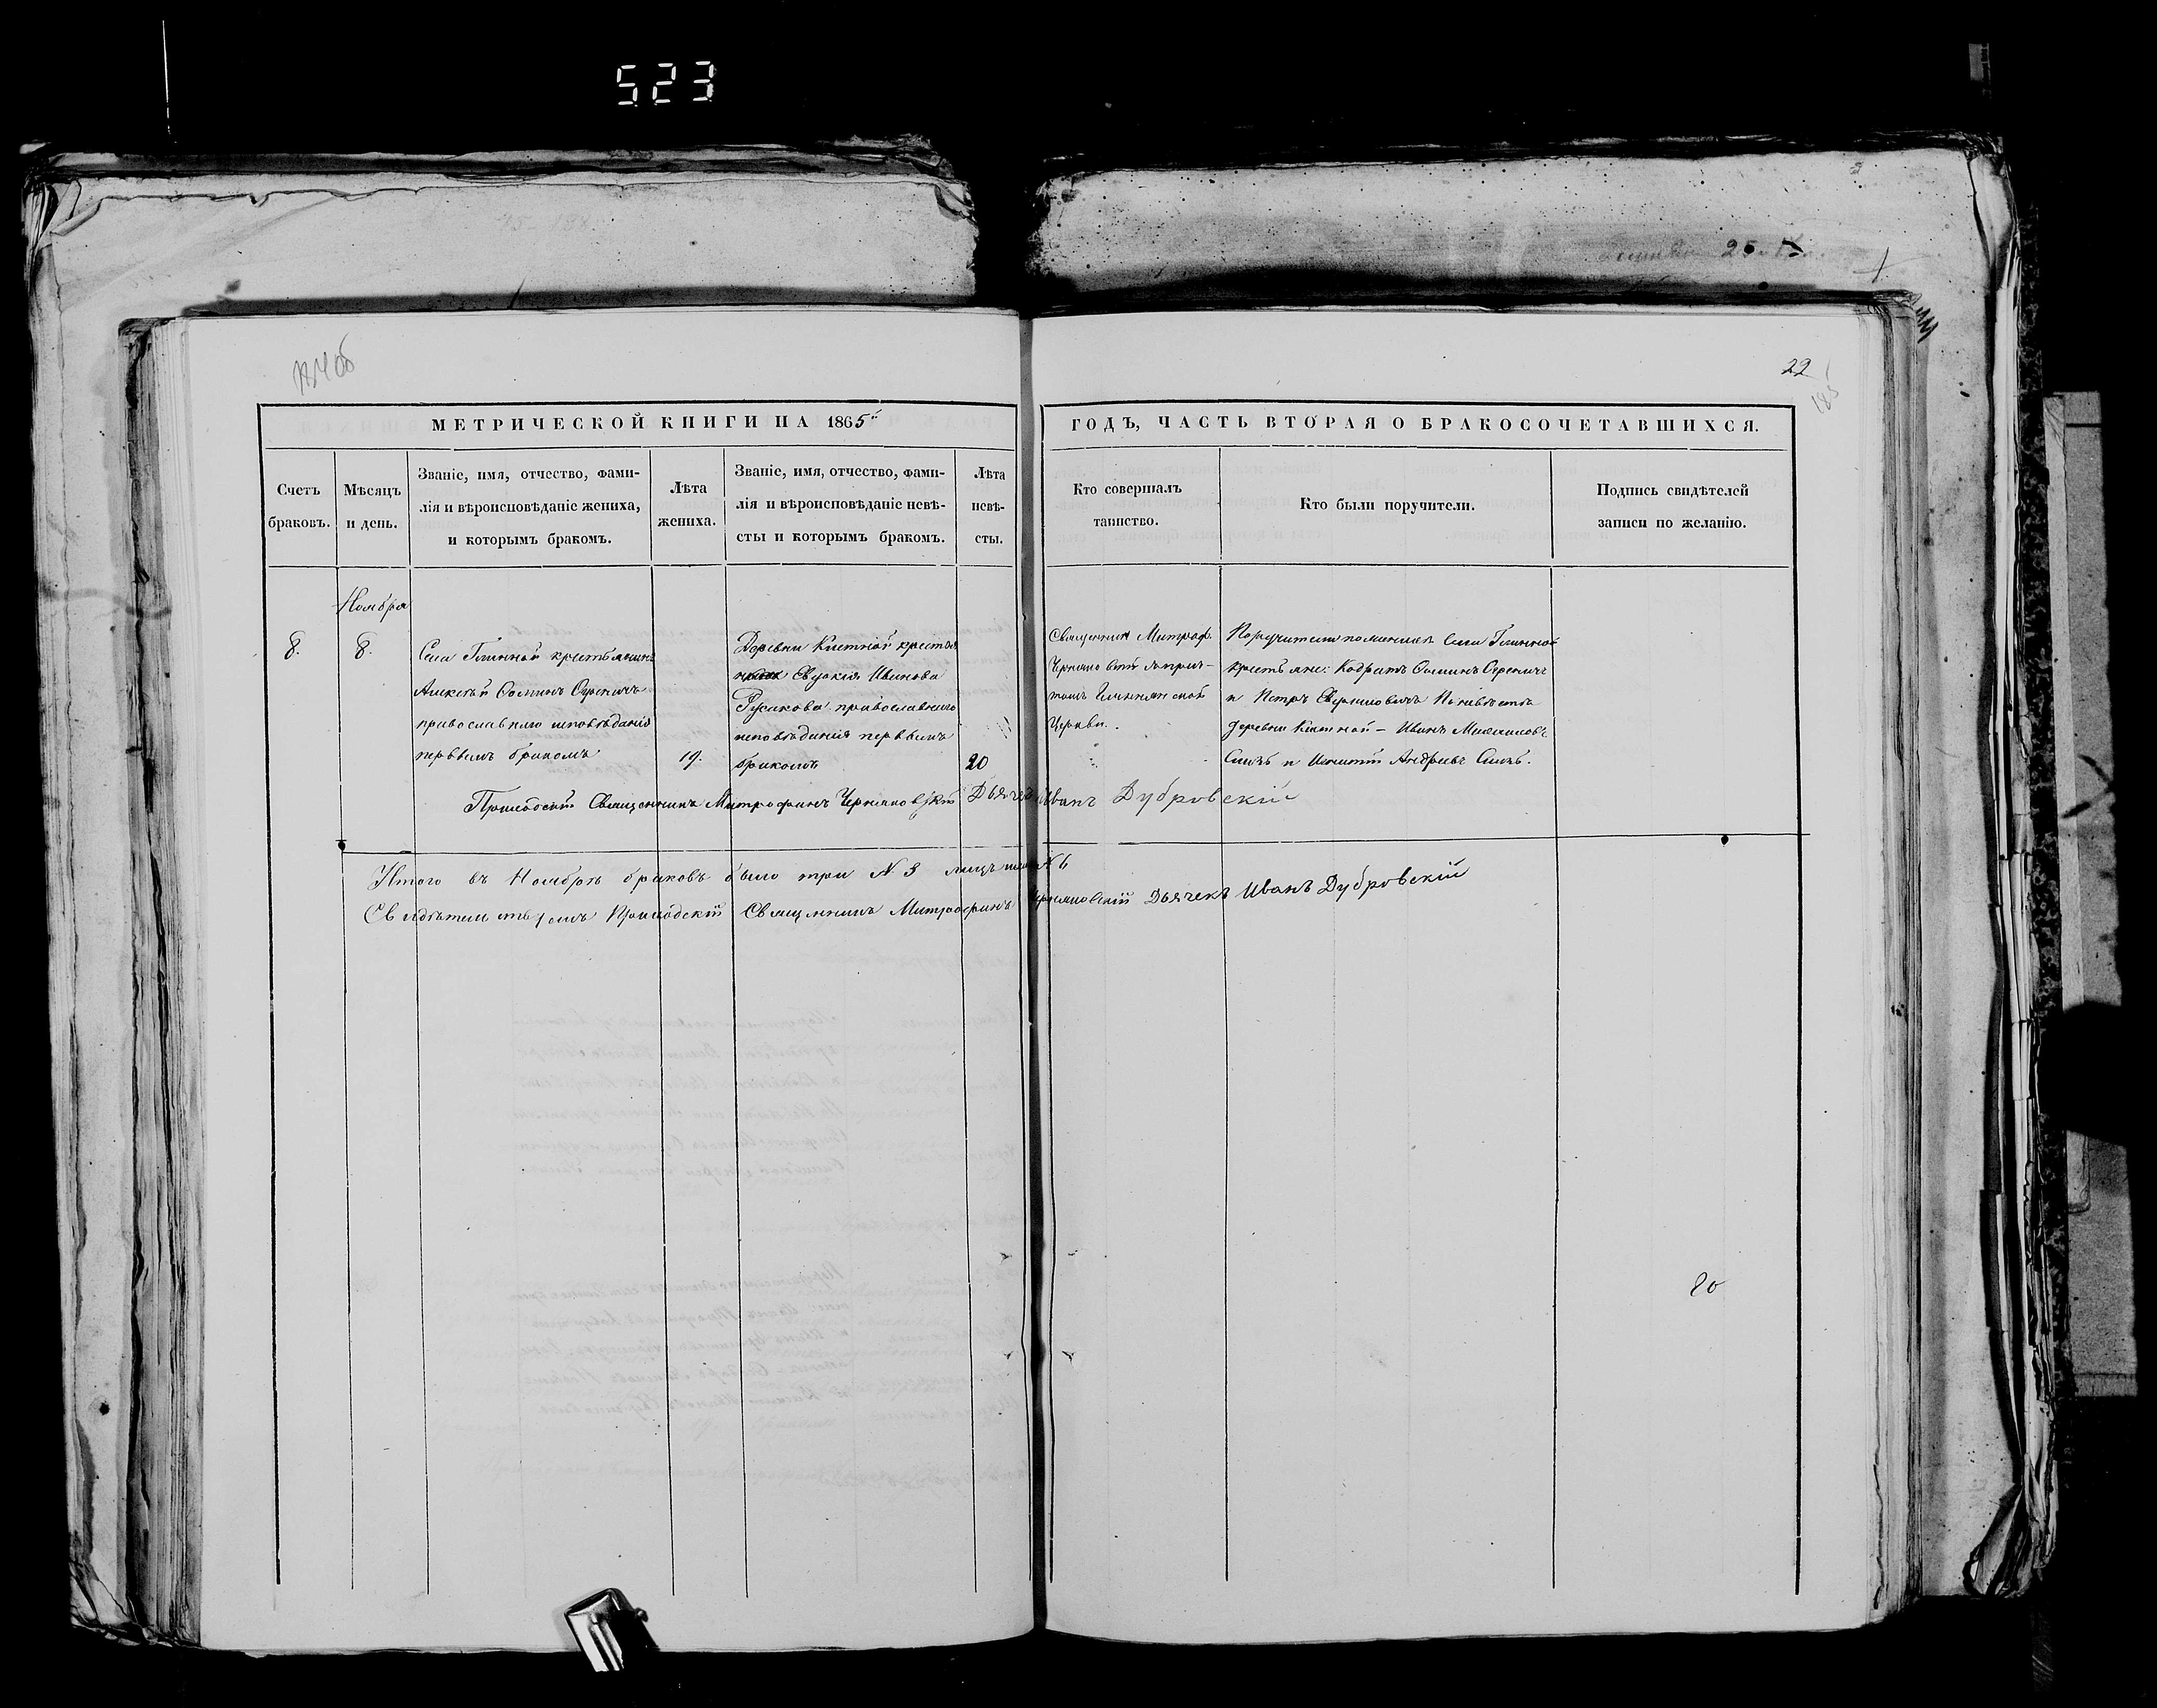 523
25
22
185
МЕТРИЧЕСКОЙ КНИГИ НА 1865й
ГОДЪ, ЧАСТЬ ВТОРАЯ О БРАКОСОЧЕТАВШИХСЯ.
Счетъ
браковъ.
Мѣсяцъ
и день.
Званіе, имя, отчество, фами-
лія и вѣроисповѣданіе жениха,
и которымъ бракомъ.
Лѣта
жениха.
Званіе, имя, отчество, фами-
лія и вѣроисповѣданіе невѣ-
сты и которымъ бракомъ.
Лѣта
невѣ-
сты.
Кто совершалъ
таинство.
Кто были поручители.
Подпись свидѣтелей
записи по желанію.
Ноября
8.
8.
Села Глинной крестьянинъ
Алексѣй Фоминъ
православнаго исповѣданія
первымъ бракомъ
19.
Деревни крестья
Евдокія Иванова
Русакова православнаго
исповѣданія первымъ
бракомъ
20
Священникъ Митроф.
Черняновскій съ прич-
томъ Глиннянской
Церкви.
Поручители по женихѣ Села Глинной
крестьяне: Кодратъ Фоминъ
и Петръ По невѣстѣ
деревни Иванъ Михаиловъ
и Игнатій Андреевъ
Приходскій Священникъ Митрофанъ Черняновскій Дьячекъ Иванъ Дубровскій
Итого въ Ноябрѣ браковъ было три № 3 лицъ № 6
Свидѣтельствуемъ Приходскій Священникъ Митрофанъ Черняновскій Дьячекъ Иванъ Дубровскій
80